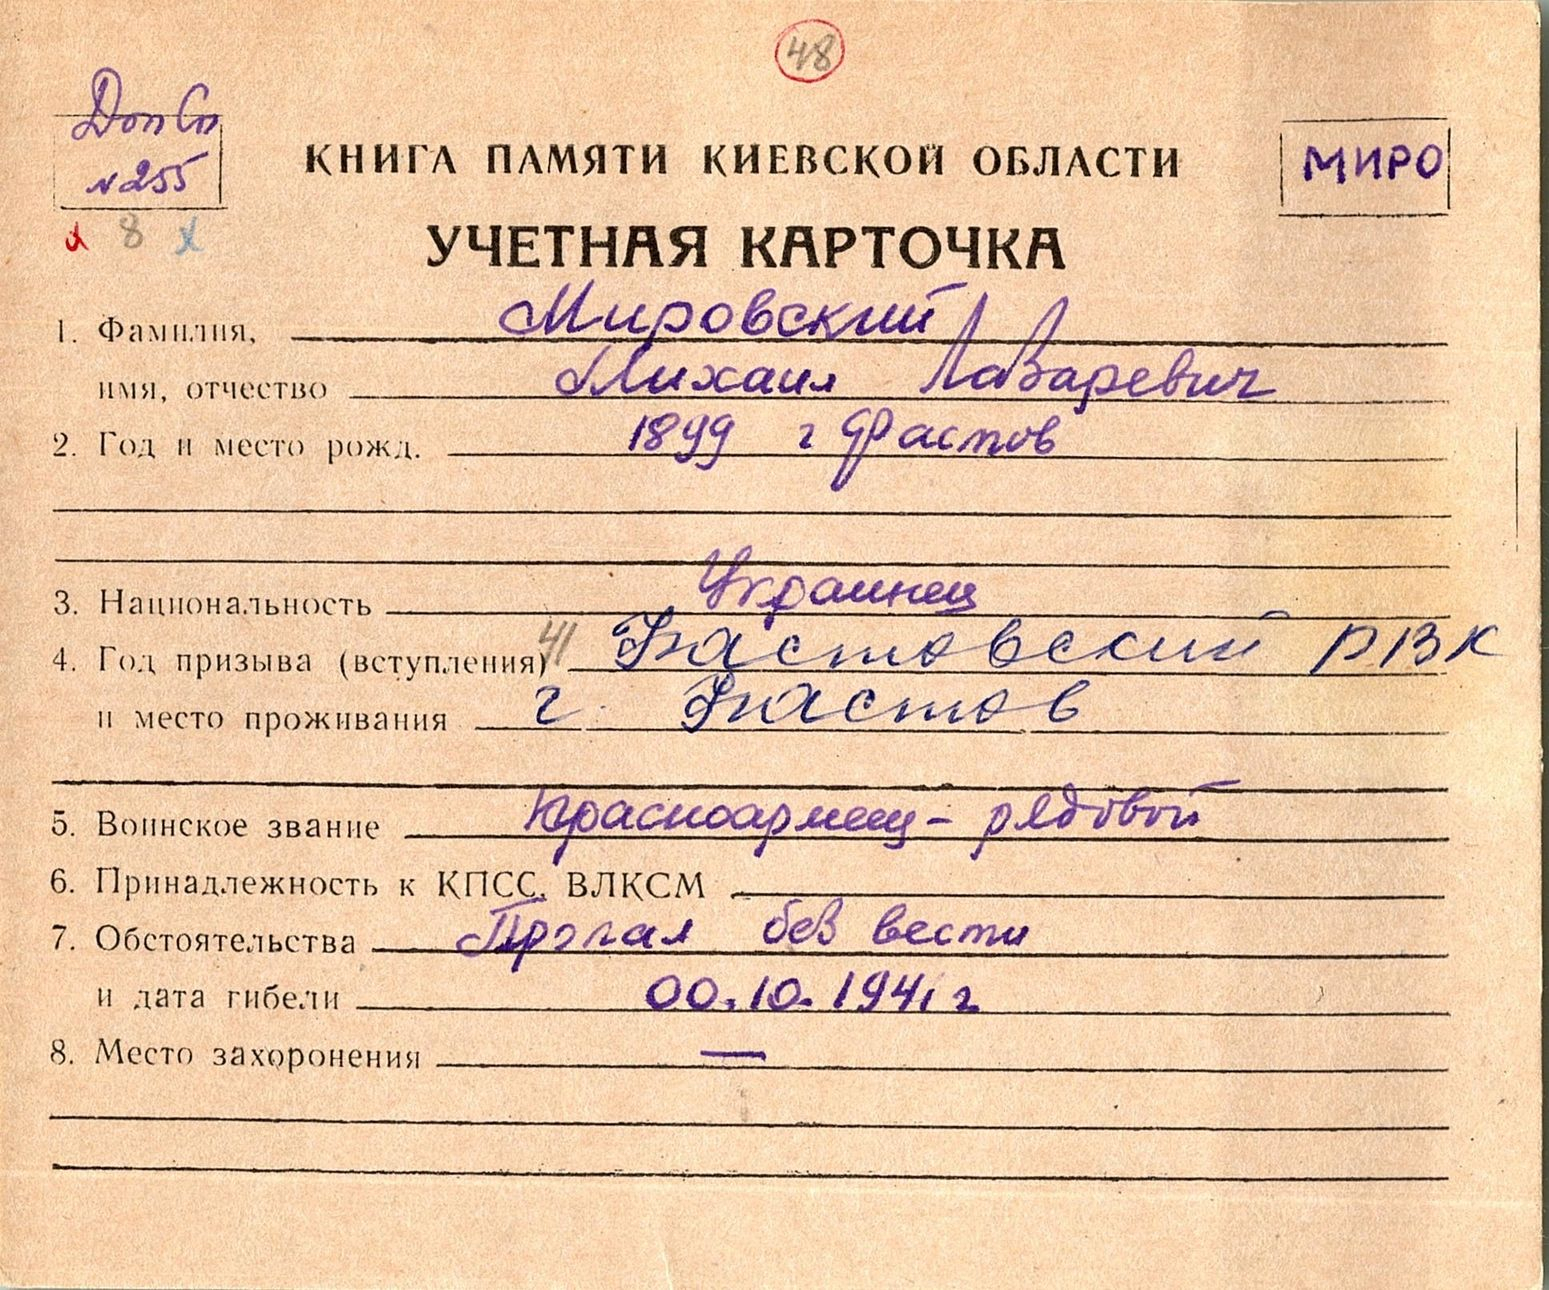 48
Доп Сп
№ 255
КНИГА ПАМЯТИ КИЕВСКОЙ ОБЛАСТИ
МИРО
8 х
УЧЕТНАЯ КАРТОЧКА
1. Фамилия, Мировский
имя, отчество Михаил Лазаревич
2. Год и место рожд. 1899 г Фастов
3. Национальность Украинец
4. Год призыва (вступления) 41 Фастовский РВК
и место проживания г. Фастов
5. Воинское звание Красноармеец - рядовой
6. Принадлежность к КПСС, ВЛКСМ
7. Обстоятельства Пропал без вести
и дата гибели 00.10.1941 г
8. Место захоронения —